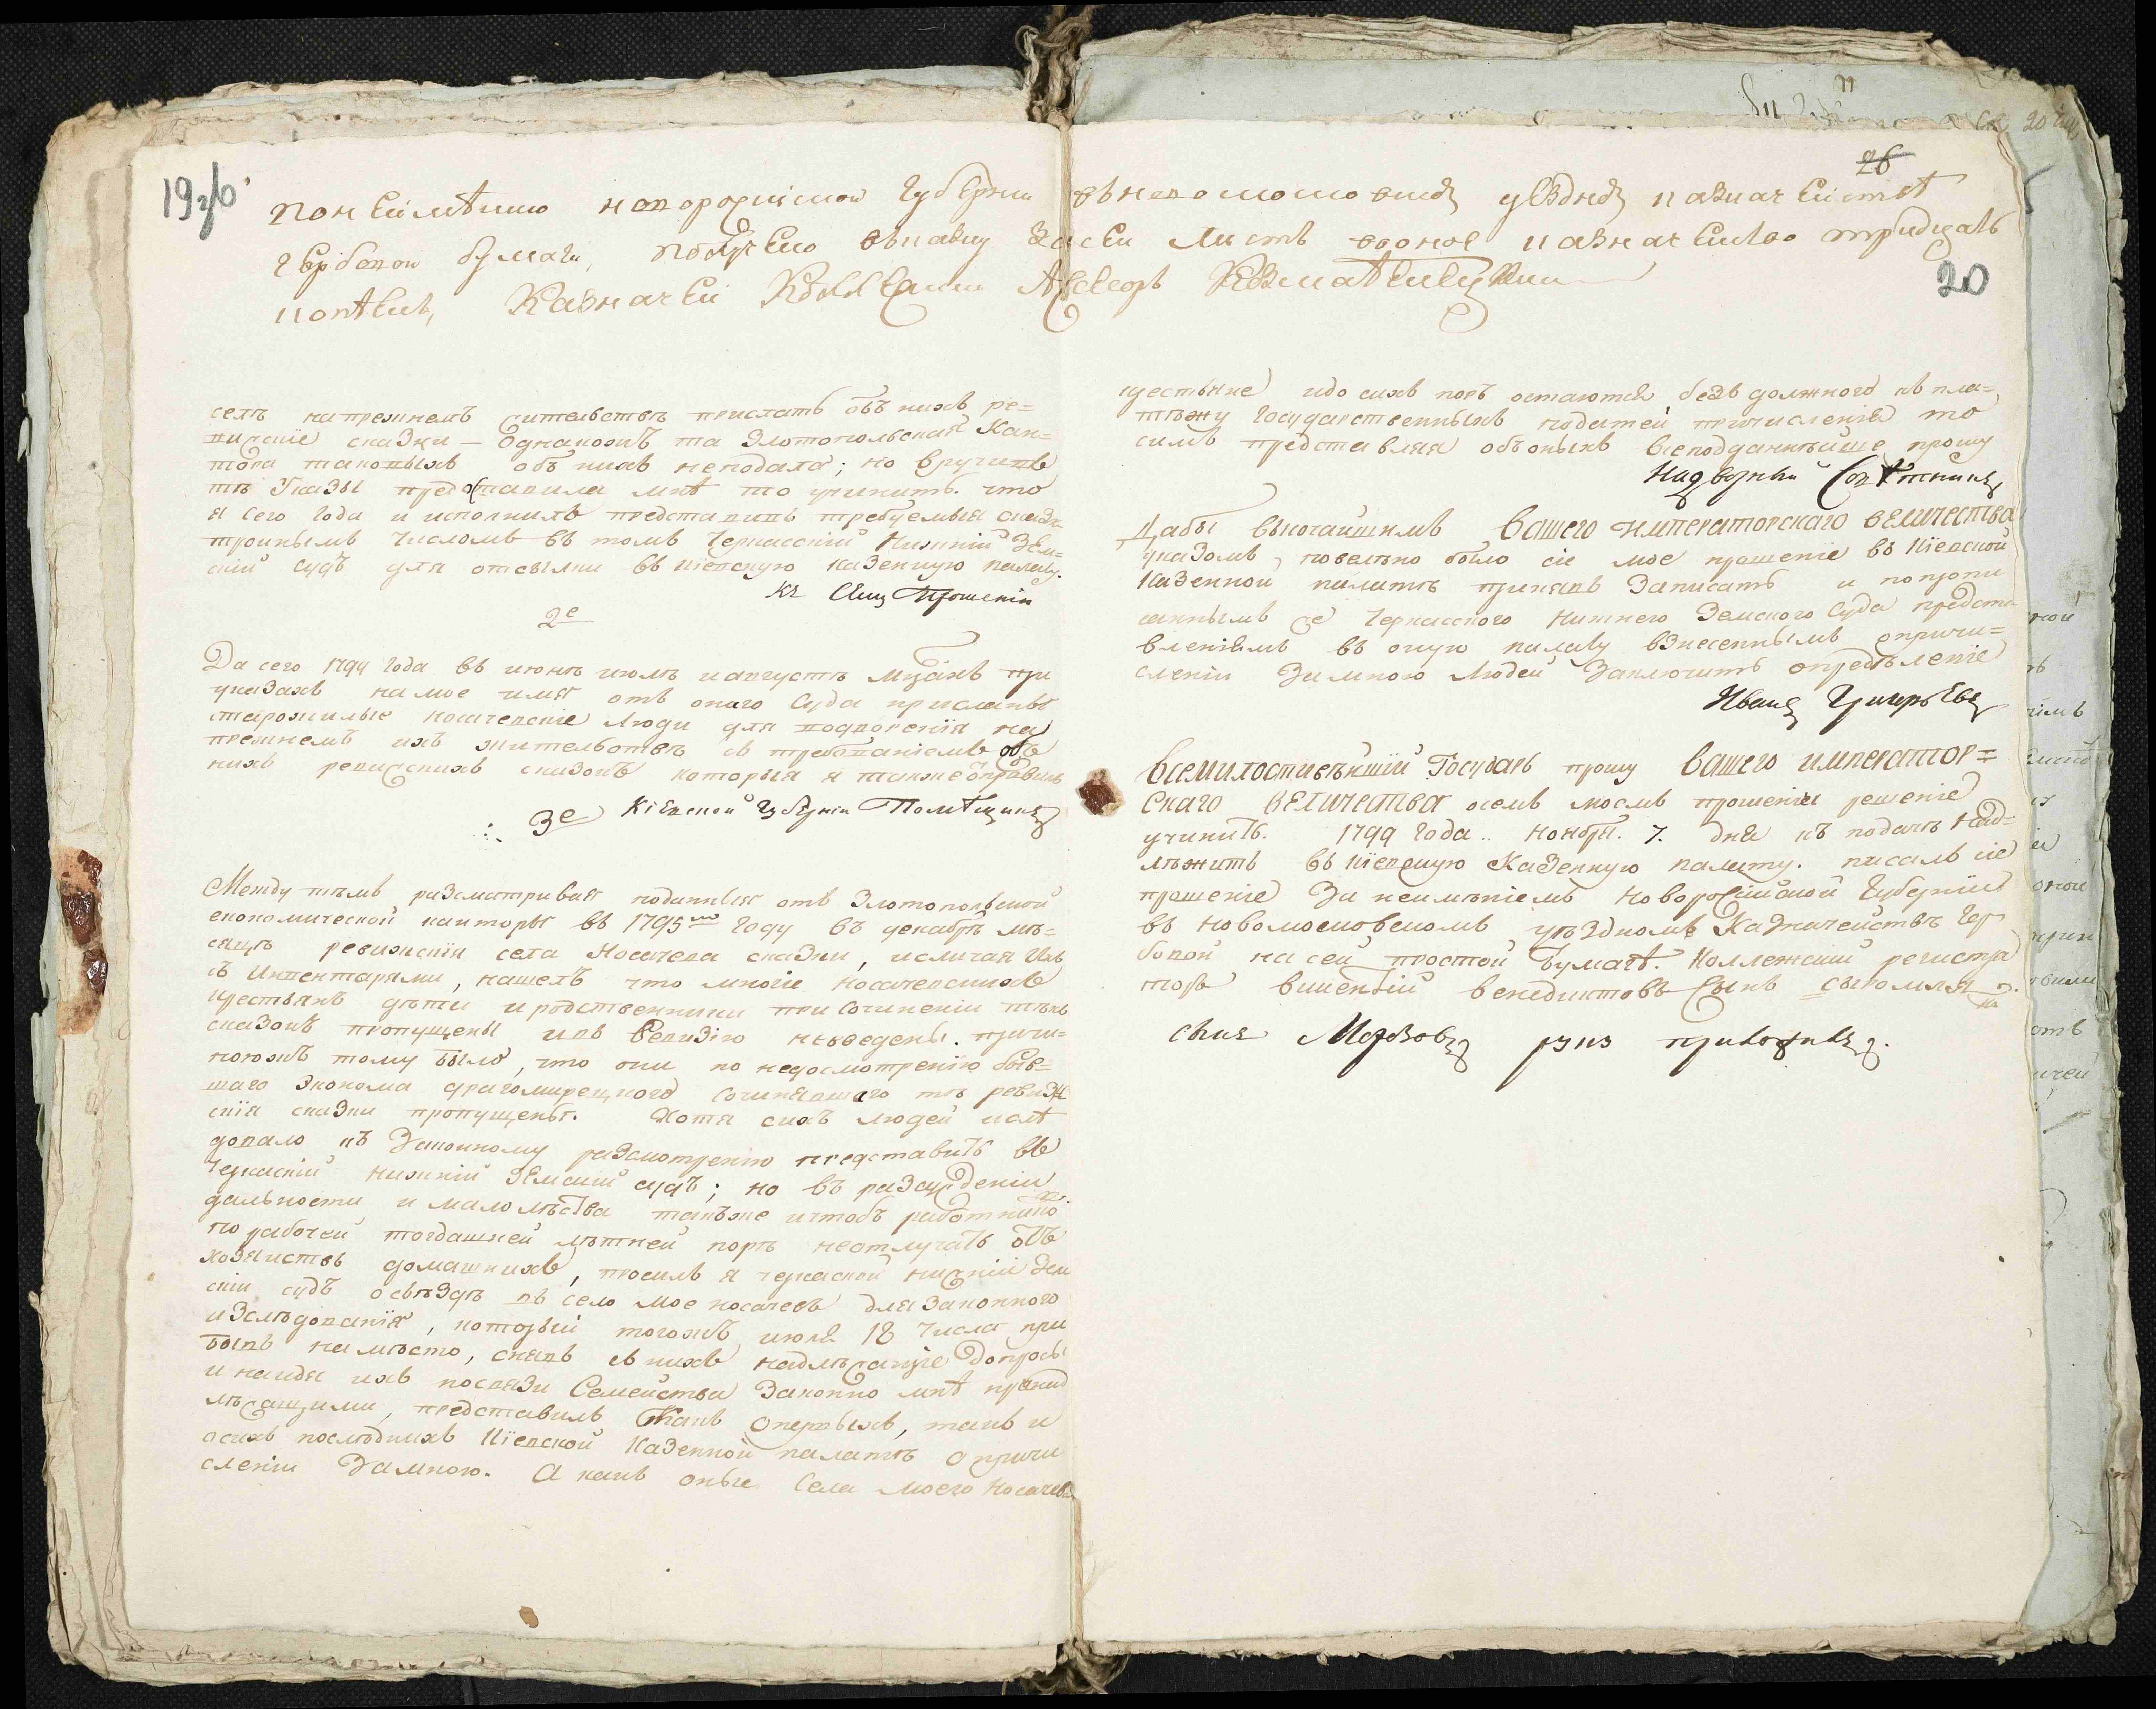 19 об
26
20
По неимѣнию новоросийской губернии въ новомосковскомъ уѣздномъ казначействѣ
гербовой бумаги, получено въ казну за сей листъ въ оное казначейство тридцать
копѣекъ, Казначей Коллежский Асессоръ
селѣ на прежнемъ жительствѣ прислать объ нихъ ре=
вискіе сказки — однакожъ та Златопольская Кан=
тора таковыхъ объ нихъ неподала; но вручивъ
тѣ Указы предоставила мнѣ то учинить. что
я сего года и исполнилъ представивъ требуемыя сказк
троинымъ числомъ въ томъ Черкасскій Нижній Зем=
скій судъ для отсылки въ Кіевскую казенную палату.
Къ Сему Прошенію
2е
Да сего 1799 года въ июнѣ июлѣ и августѣ мцахъ при
указахъ на мое имя отъ онаго Суда присланы
старожилые носачевскіе люди для водворенія на
прежнемъ ихъ жительствѣ съ требованіемъ объ
нихъ ревискихъ сказокъ которыя я также отправилъ
3е Кіевской Губерніи Помѣщикъ
Между тѣмъ разсматривая поданныя отъ Златопольской
економической канторы въ 1795мъ году въ декабрѣ мѣ=
сяцѣ ревижскія села Носачева сказки, и сличая ихъ
съ Инвентарями, нашелъ что многіе носачевскихъ
крестьянъ дѣти и родственники при сочиненіи тѣхъ
сказокъ пропущены и въ Ревизію невведены. причи=
ноюжъ тому было, что они по недосмотренію быв=
шаго Эконома драгомирецкого сочинявшаго тѣ ревиж
скія сказки пропущены. Хотя сихъ людей и слѣ
довало къ Законному разсмотренію представить въ
Черкаскій нижній Земскій судъ; но въ разсужденіи
дальности и малолѣтства такъже и чтобъ работниковъ
по рабочей тогдашней лѣтней порѣ неотлучать отъ
хозяиствъ домашнихъ, просилъ я черкаской нижній Зем
скій судъ о съѣздѣ въ село мое носачевъ для законного
изслѣдованія, который тогожъ июля 18 числа при
бывъ на мѣсто, снявъ съ нихъ надлѣжащіе допросы
и найдя ихъ по связи Семейства Законно мнѣ принад
лѣжащими, представилъ какъ о первыхъ, такъ и
о сихъ послѣднихъ Кіевской Казенной палатѣ о причи
сленіи За мною. А какъ оные Села моего Носачева
крестьяне и до сихъ поръ остаются безъ должного къ пла=
тѣжу государственныхъ податей причисленія то
симъ представляя объ оныхъ всеподданнѣйше прошу
Надворный Совѣтникъ
Дабы высочайшимъ вашего императорскаго величества
указомъ, повелѣно было сіе мое прошеніе въ Кіевской
казенной палатѣ принявъ Записать и по пропи
саннымъ с Черкасского Нижнего Земского Суда предста
вленіямъ въ оную палату взнесеннымъ о причи=
сленіи За мною людей Заключить опредѣленіе
Иванъ Григорьевъ
Всемилостивѣйшій Государь прошу Вашего император=
скаго величества о семъ моемъ прошеніи решеніе
учинить. 1799 года. Ноября. 7. дня къ подачѣ над=
лѣжитъ въ Кіевскую Казенную палату. писалъ сіе
прошеніе За неимѣніемъ Новоросійской Губерніи
въ Новомосковскомъ уѣздномъ Казначействѣ гер
бовой на сей простой бумагѣ. Коллежскій регистра
торъ викентій венедиктовъ Сынъ
сынъ руку приложилъ.